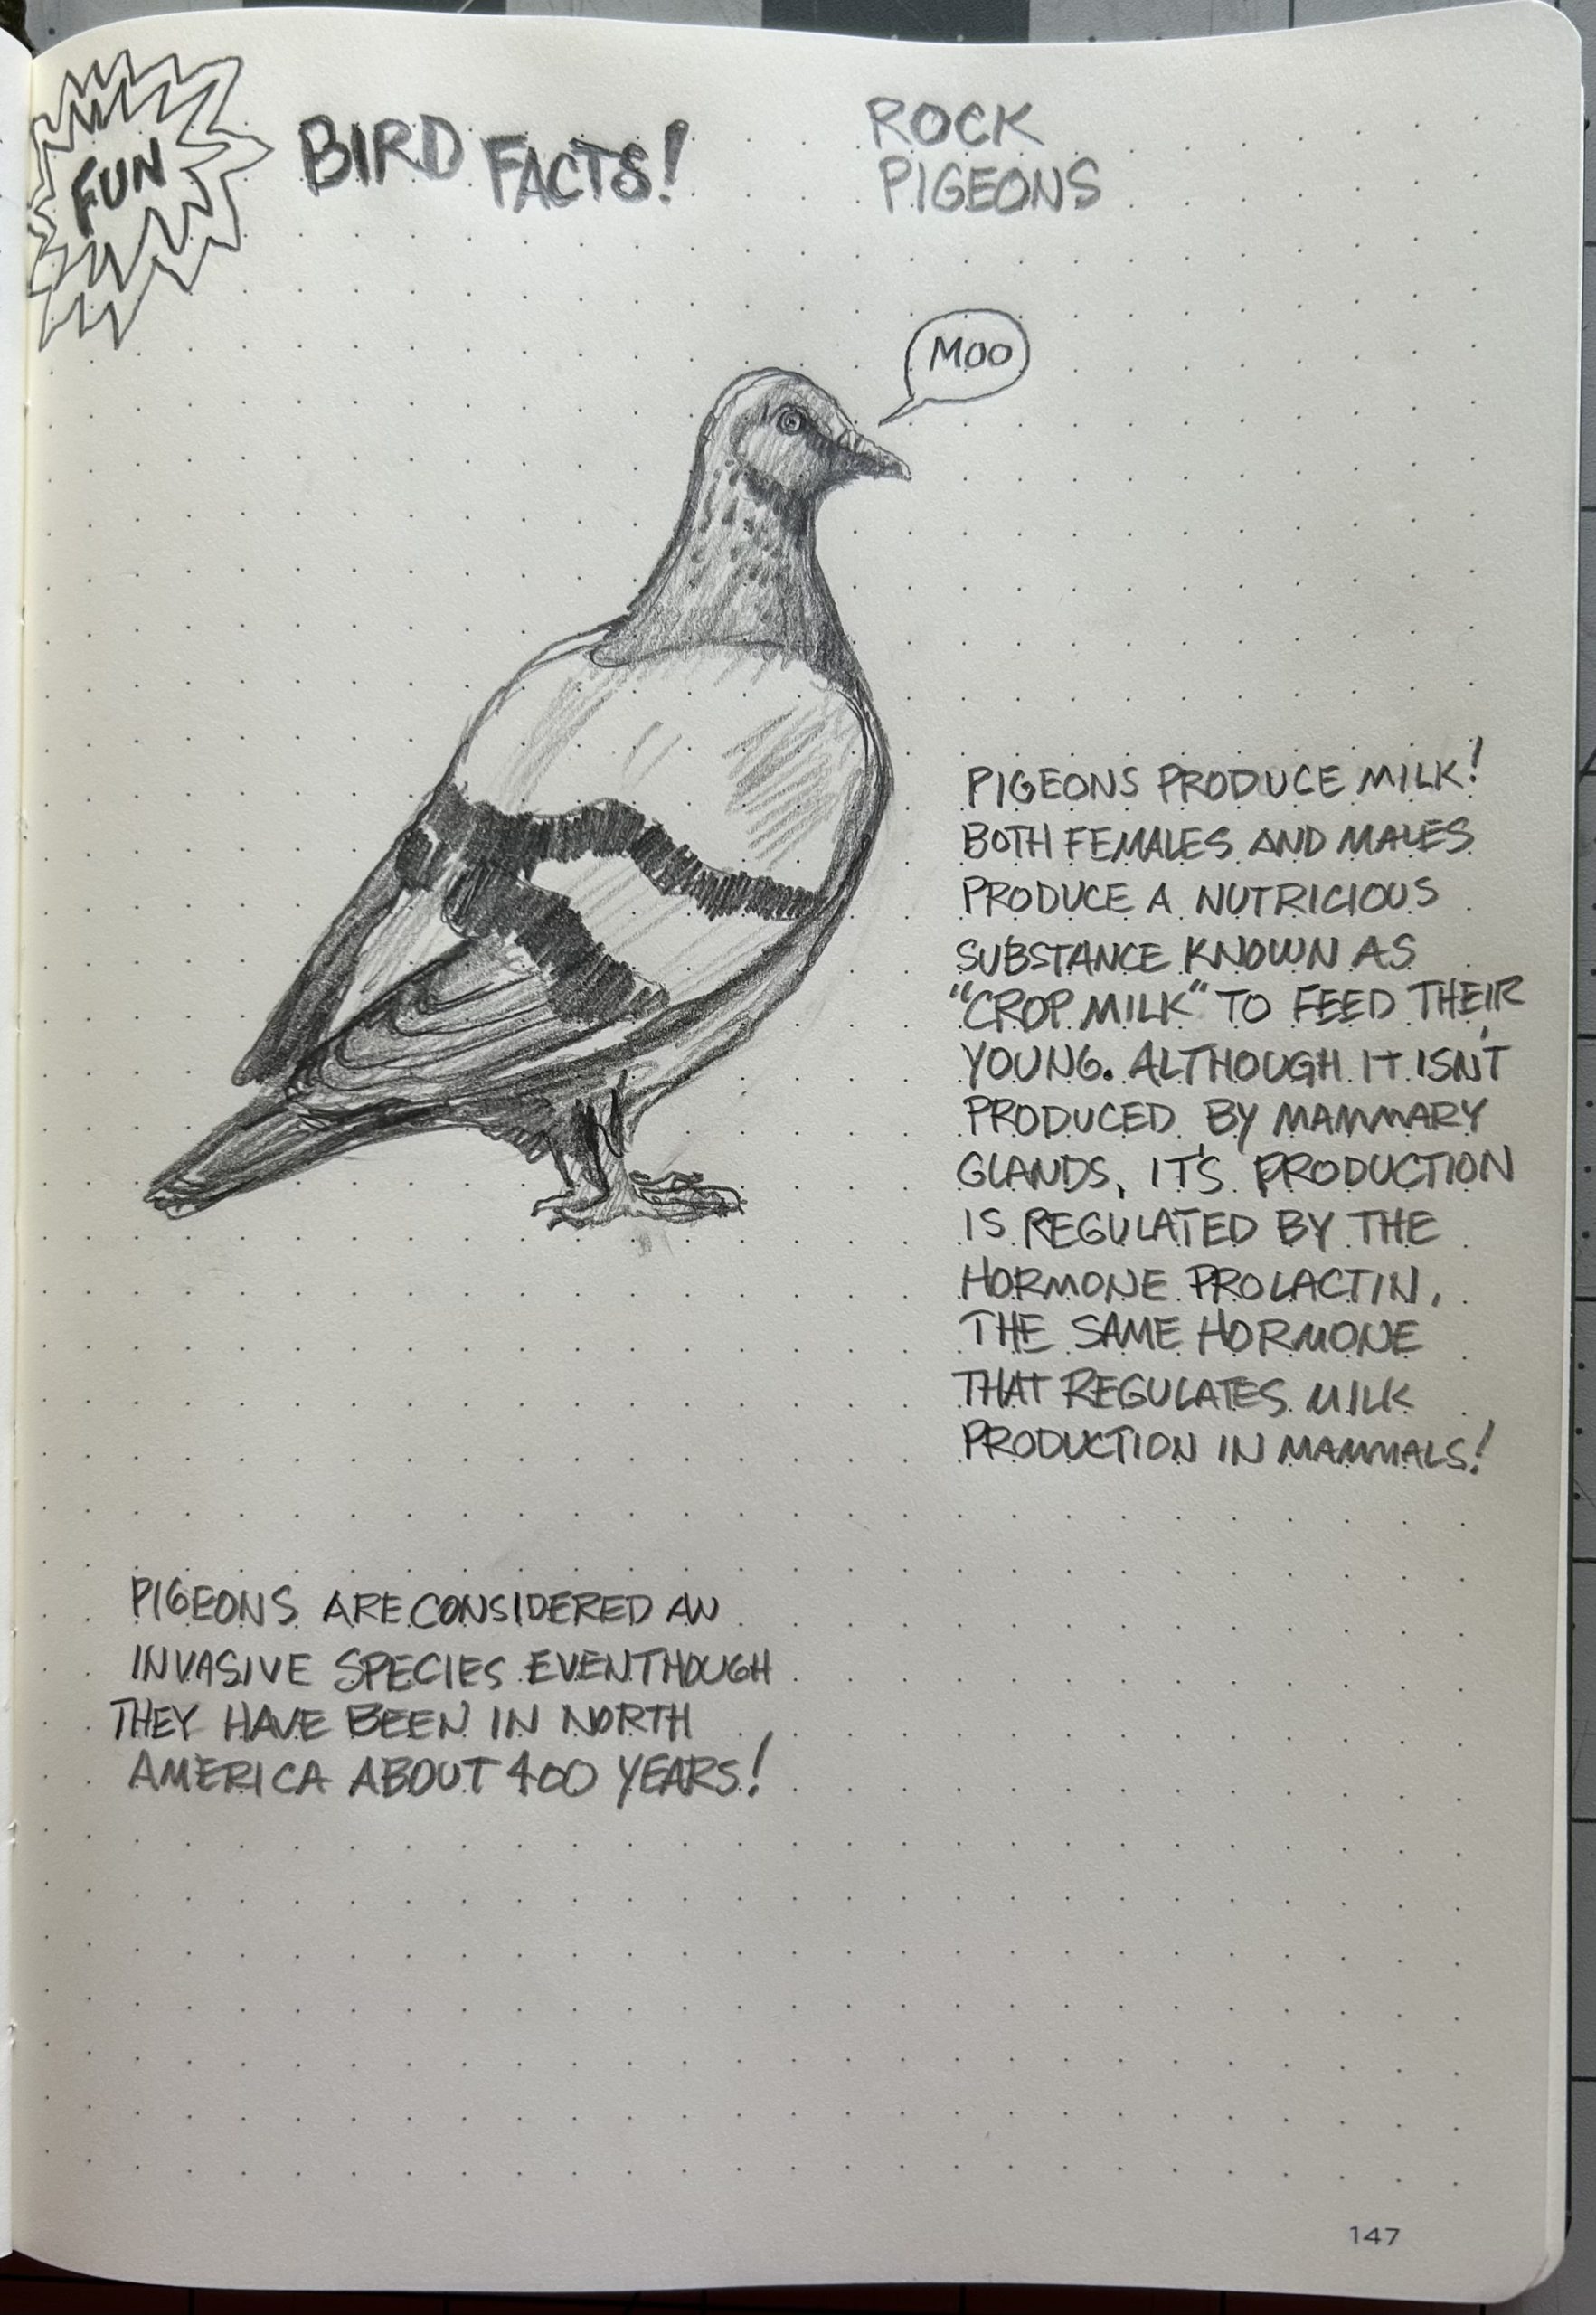 FUN
BIRD FACTS!
ROCK
PIGEONS
MOO
PIGEONS PRODUCE MILK!
BOTH FEMALES AND MALES
PRODUCE A NUTRICIOUS
SUBSTANCE KNOWN AS
"CROP MILK" TO FEED THEIR
YOUNG. ALTHOUGH IT ISN'T
PRODUCED BY MAMMARY
GLANDS, IT'S PRODUCTION
IS REGULATED BY THE
HORMONE PROLACTIN,
THE SAME HORMONE
THAT REGULATES MILK
PRODUCTION IN MAMMALS!
PIGEONS ARE CONSIDERED AN
INVASIVE SPECIES EVENTHOUGH
THEY HAVE BEEN IN NORTH
AMERICA ABOUT 400 YEARS!
147